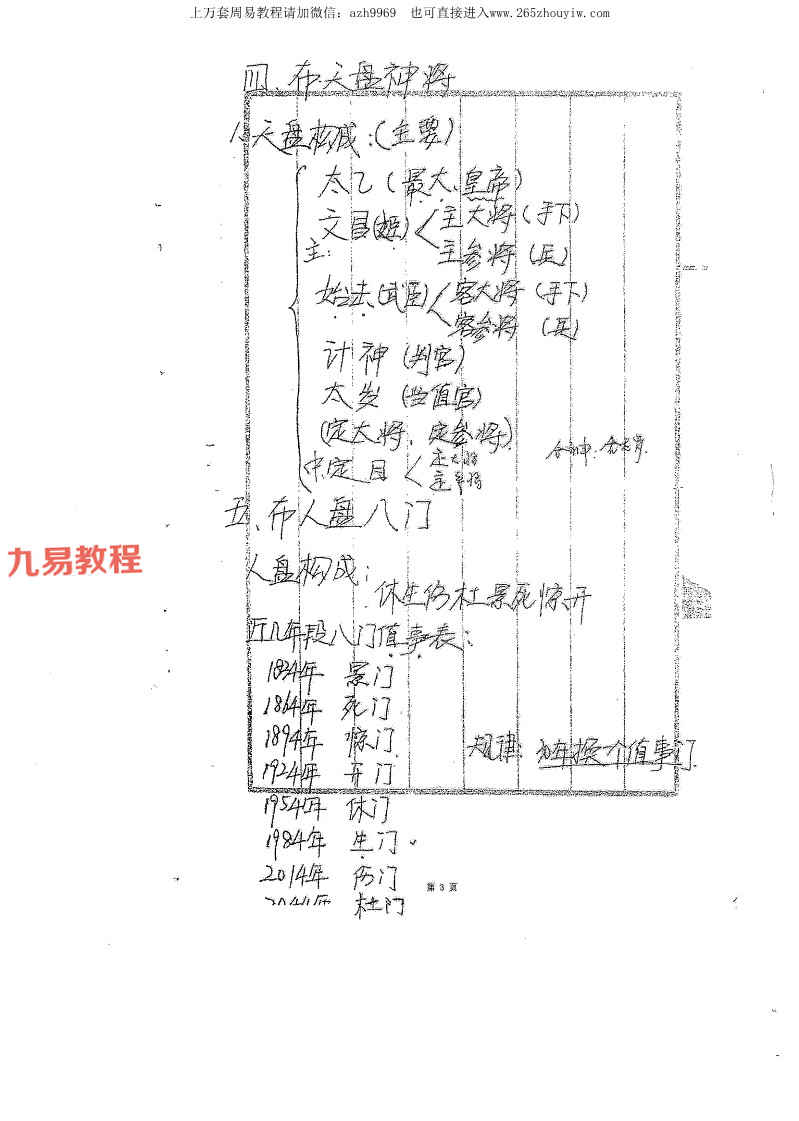 上万套周易教程请加微信：azh9969 也可直接进入www.265zhouyiw.com
四、布天盘神将
1、天盘构成：(主要)
太乙（最大、皇帝）
文昌 主大将（手下）
主： 主参将（兵）
始击（武臣） 客大将（手下）
客参将（兵）
计神（判官）
太岁（当值官）
(定大将、定参将)
定目 定大将
定参将
五、布人盘八门
九易教程
人盘构成：
休生伤杜景死惊开
近几年段八门值事表：
1834年 景门
1864年 死门
1894年 惊门
规律： 年换一个值事门
1924年 开门
1954年 休门
1984年 生门
2014年 伤门
第 3 页
杜门